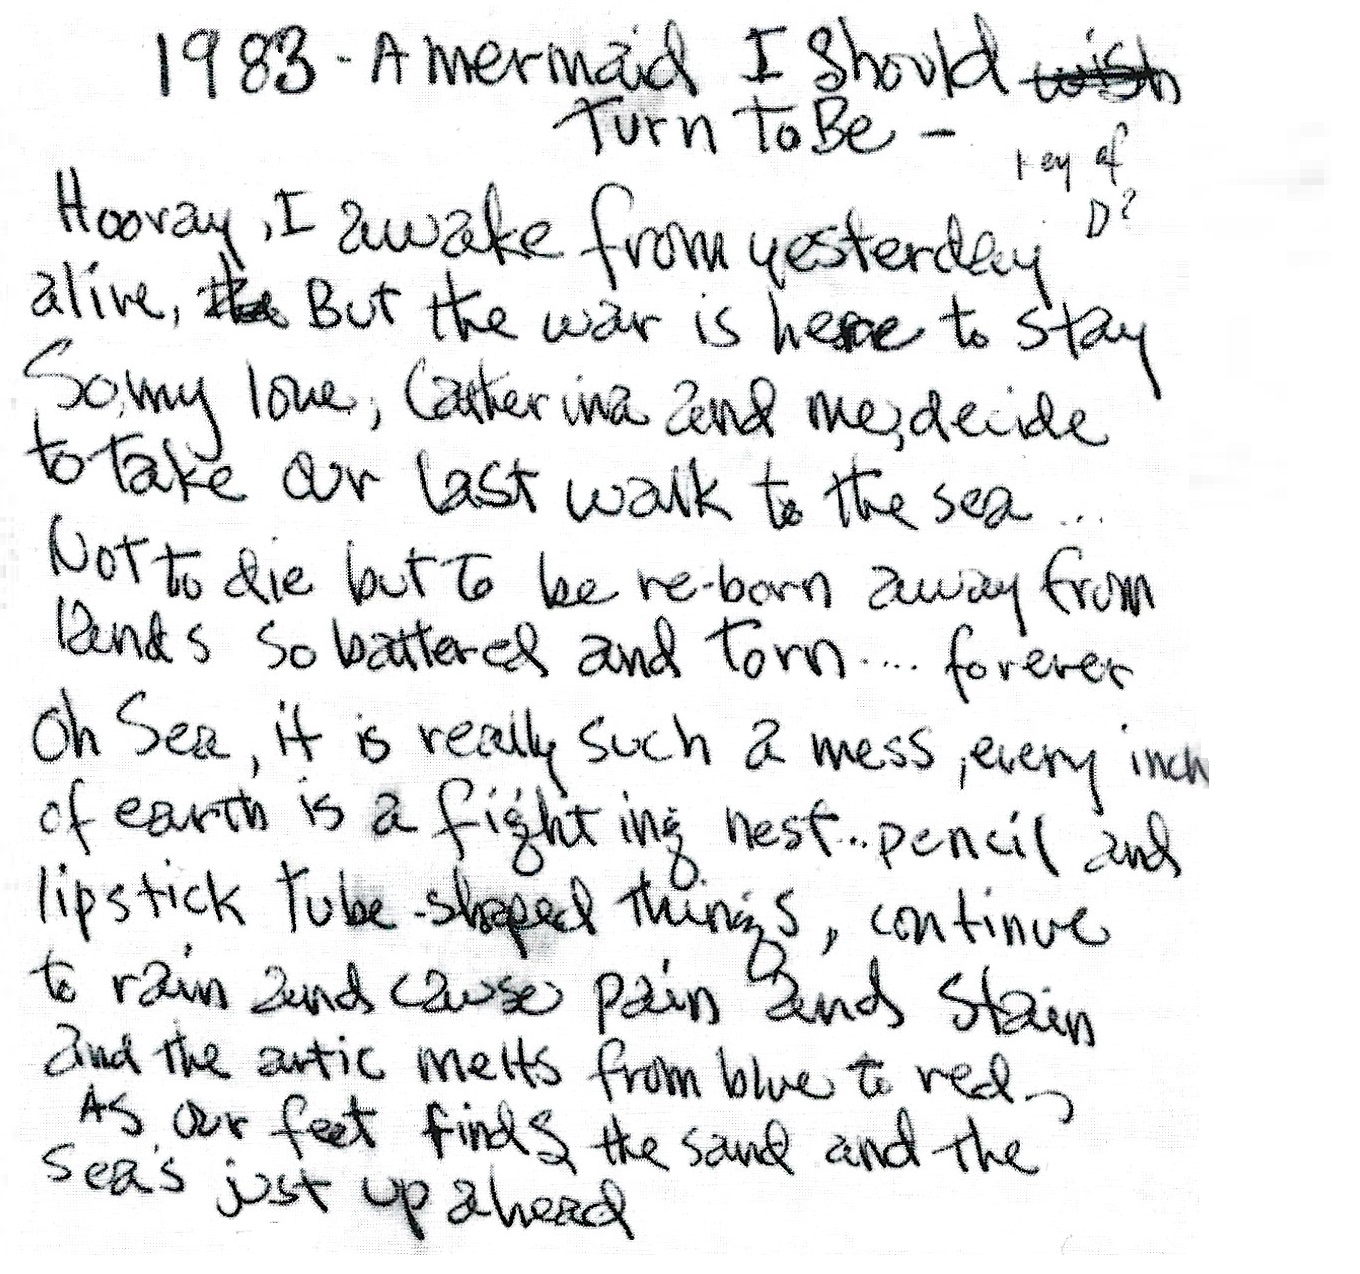 1983 - A mermaid I Should wish
Turn To Be -
Key of
D?
Hooray, I awake from yesterday
alive, the But the war is here to stay
So, my love, Catherina and me, decide
to take our last walk to the sea ...
Not to die but To be re-born away from
lands so battered and torn .... forever
Oh Sea, it is really such a mess, every inch
of earth is a fighting nest... pencil and
lipstick tube-shaped things, continue
to rain and cause pain and stain
and the artic melts from blue to red,
As our feet finds the sand and the
sea's just up ahead